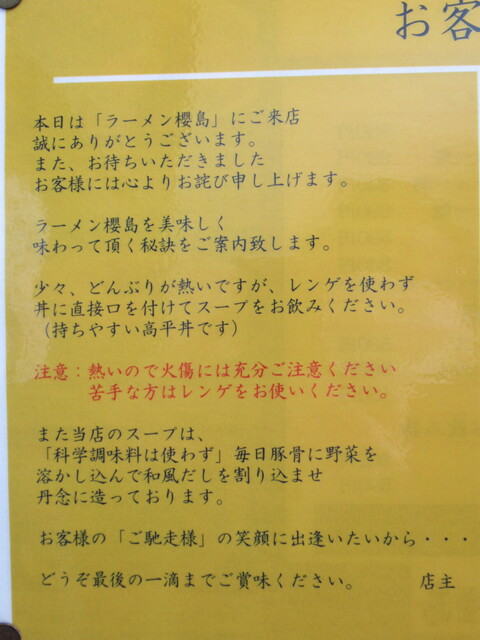 お客
本日は「ラーメン櫻島」にご来店
誠にありがとうございます。
また、お待ちいただきました
お客様には心よりお詫び申し上げます。
ラーメン櫻島を美味しく
味わって頂く秘訣をご案内致します。
少々、どんぶりが熱いですが、レンゲを使わず
丼に直接口を付けてスープをお飲みください。
（持ちやすい高平丼です）
注意：熱いので火傷には充分ご注意ください
苦手な方はレンゲをお使いください。
また当店のスープは、
「科学調味料は使わず」毎日豚骨に野菜を
溶かし込んで和風だしを割り込ませ
丹念に造っております。
お客様の「ご馳走様」の笑顔に出逢いたいから・・・
どうぞ最後の一滴までご賞味ください。　店主